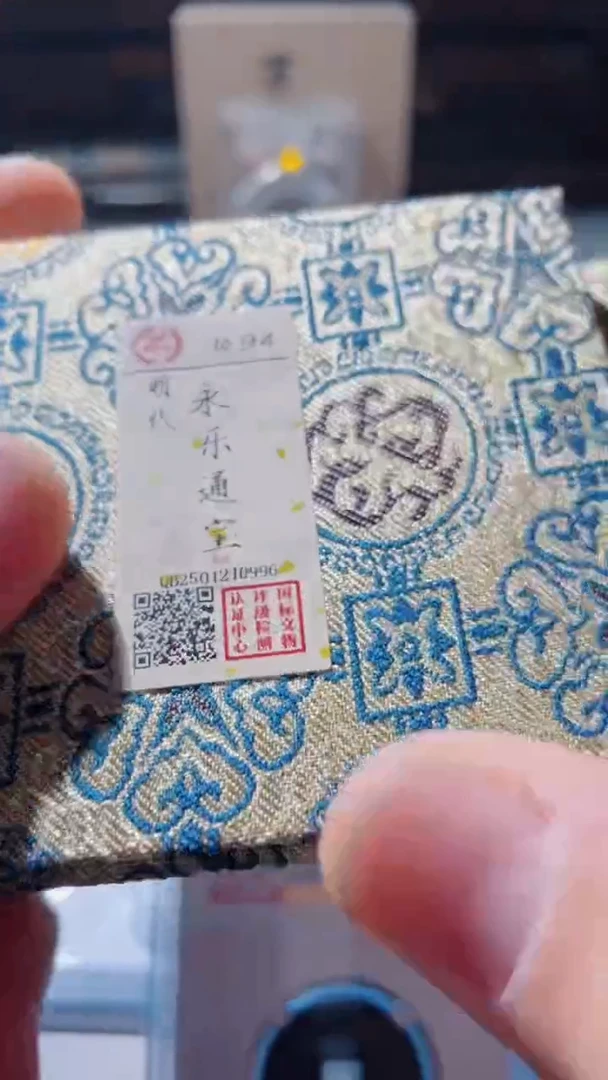 明代
永乐通宝
GB2501210996
国标文物
评级检测
认证中心